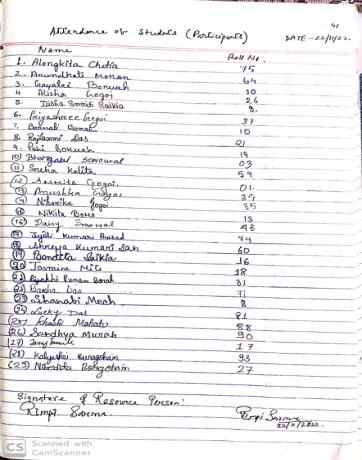 41
Attendence of Students (Participants)
DATE - 22/11/22
Name Roll No.
1. Alongkita Chetia 75
2. Arundhati Moran 64
3. Gayatri Boruah 10
4 Alisha Gogoi 26
5. Disha Smriti Saikia 2
6. Priyashree Gogoi 37
7. Boruah 15
8. Rajlaxmi Das 21
9. Pari Boruah 19
10) Bhargabi Sonowal 03
(11) Sneha Kalita 59
(12) Asmita Gogoi 01
(13) Anushka Gogoi 39
(14) Niharika Gogoi 35
(15) Nikita Boro 13
(16) Daisy Sonowal 43
(17) Jyoti Kumari Prasad 74
(18) Shreya Kumari Sah 60
(19) Bondita Saikia 16
(20) Jasmina Mili 18
(21) Punam Borah 31
(22) Barsha Das 71
(23) Shanabi Mech 8
(24) Lucky Das 81
(25) Khushi Mahato 88
(26) Sandhya Murah 90
(27) 17
(28) Kalyani Buragohain 93
(29) Nandita Borgohain 27
Signature of Resource Person:
Rimpi Sarma
Rimpi Sarma
22/11/2022.
CS Scanned with
CamScanner